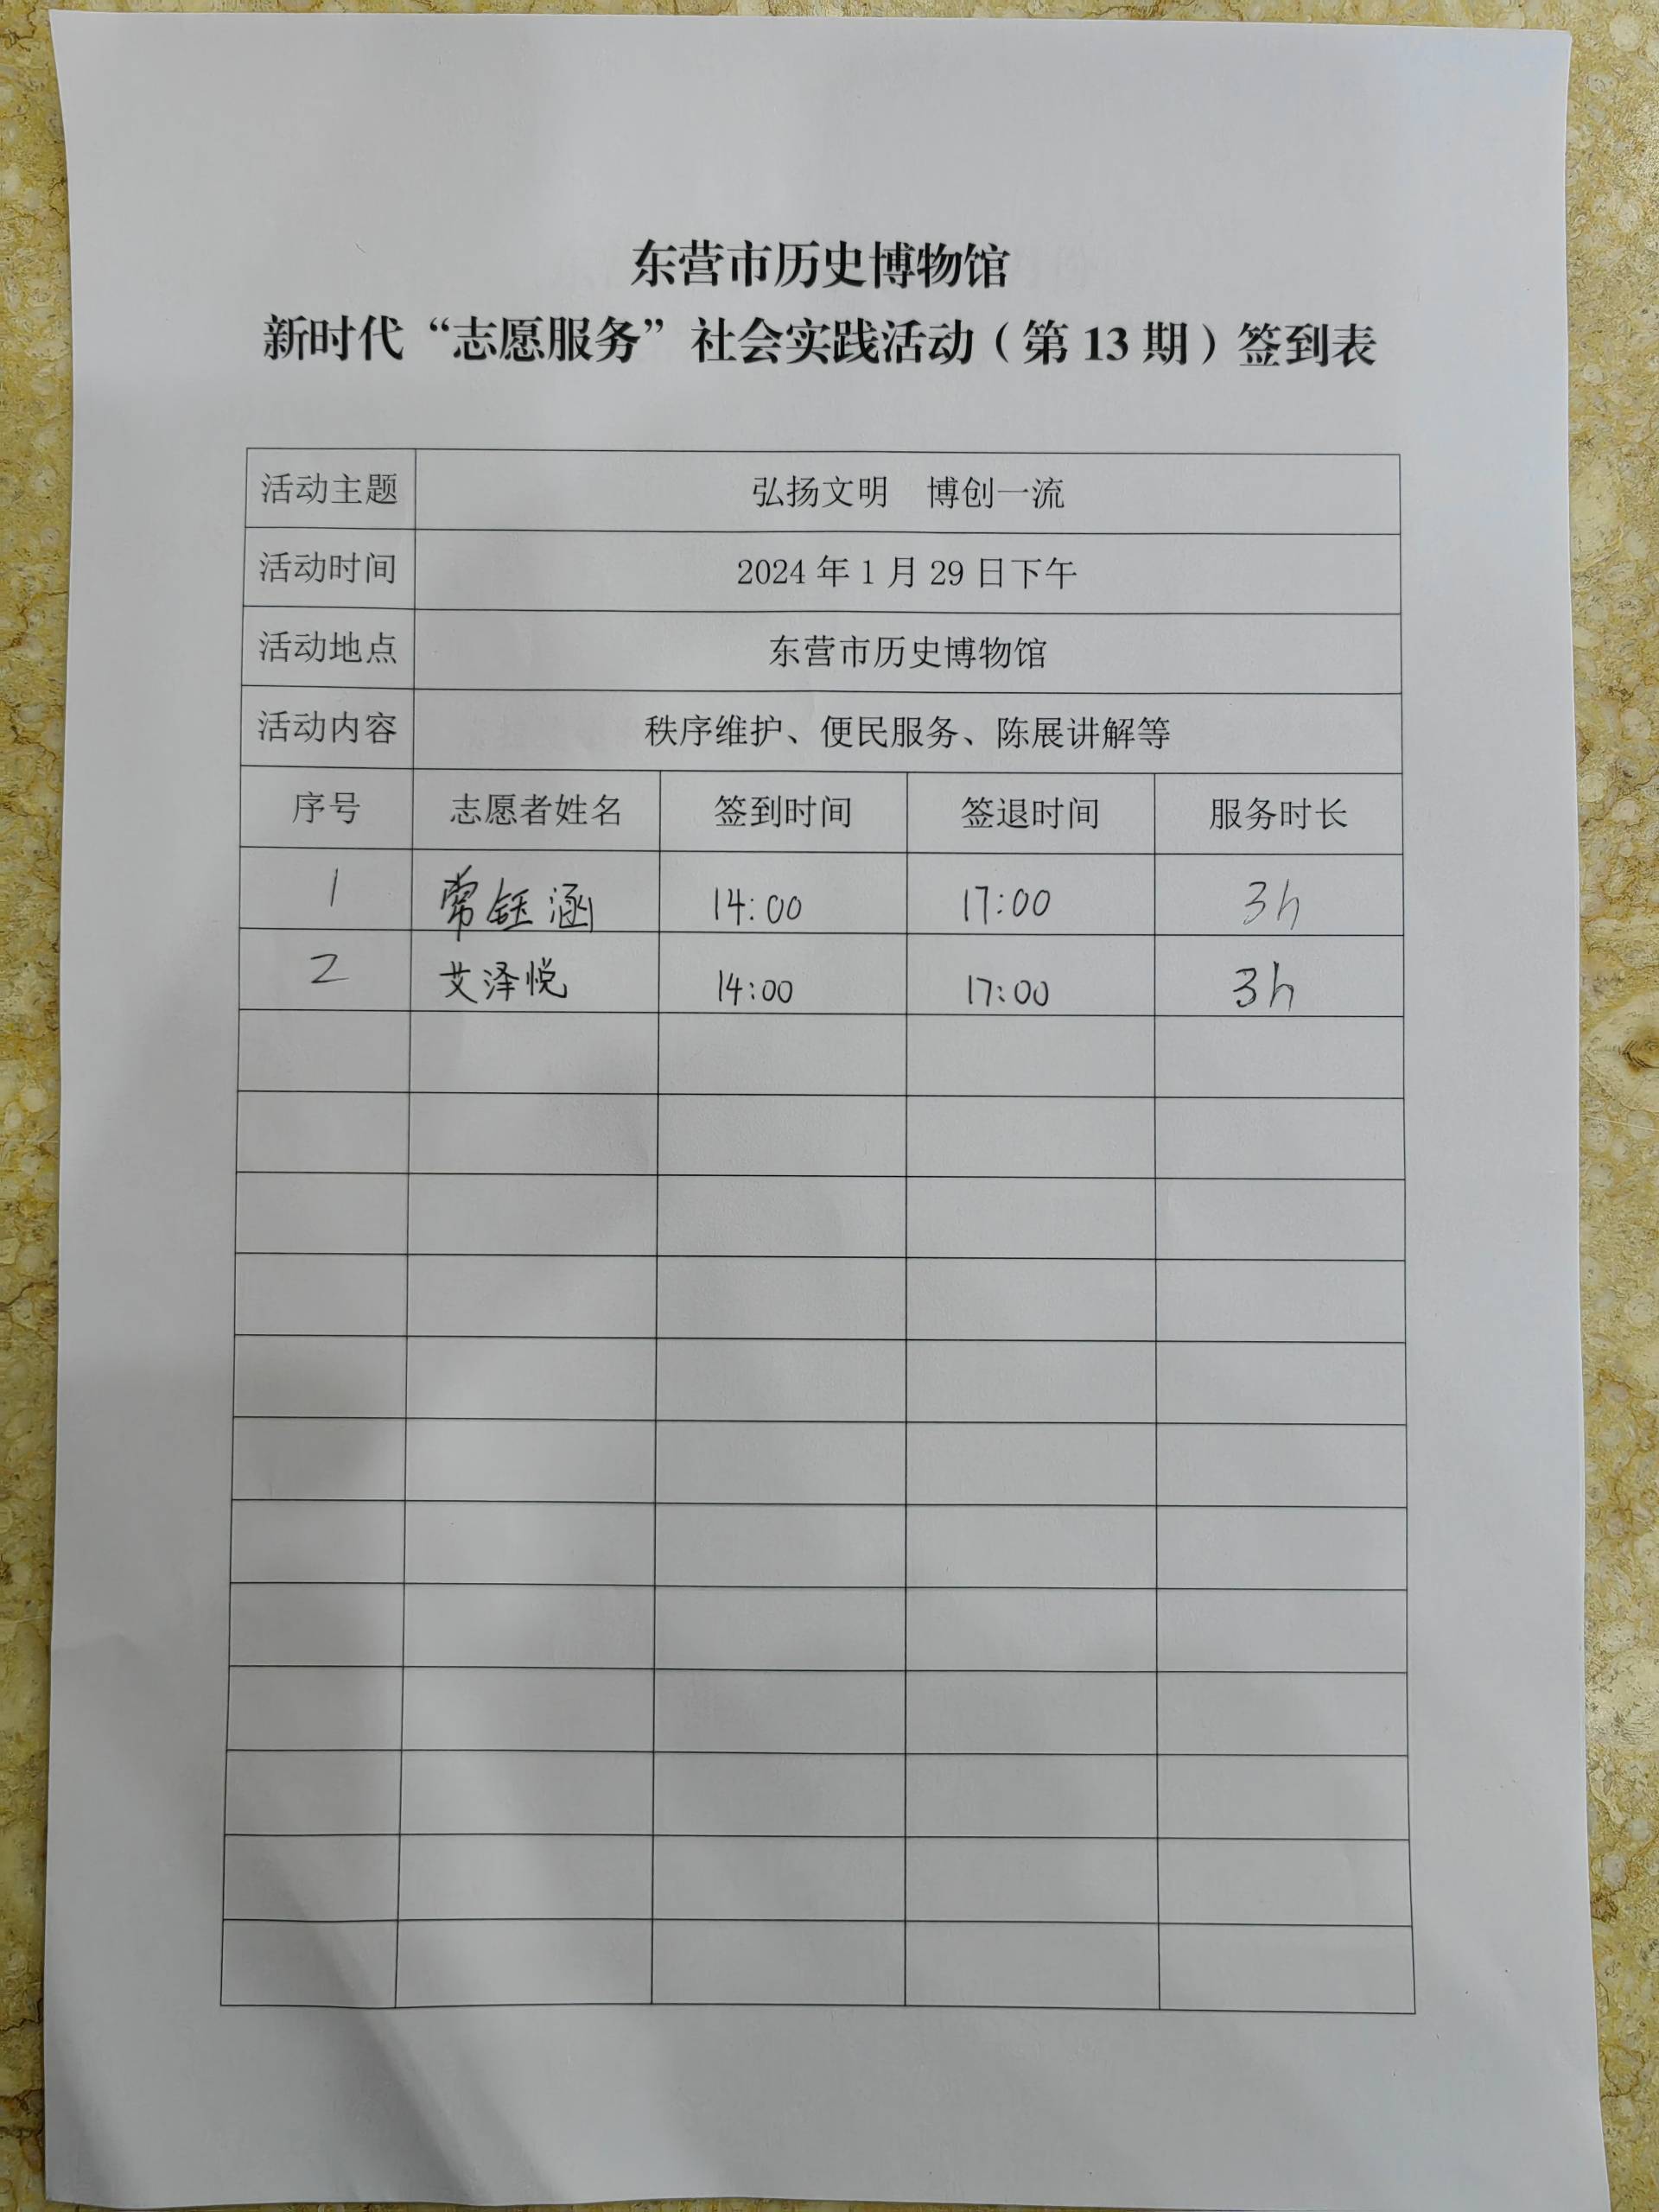 东营市历史博物馆
新时代“志愿服务”社会实践活动（第 13 期）签到表
活动主题 弘扬文明 博创一流
活动时间 2024 年 1 月 29 日下午
活动地点 东营市历史博物馆
活动内容 秩序维护、便民服务、陈展讲解等
序号 志愿者姓名 签到时间 签退时间 服务时长
1 常钰涵 14:00 17:00 3h
2 艾泽悦 14:00 17:00 3h